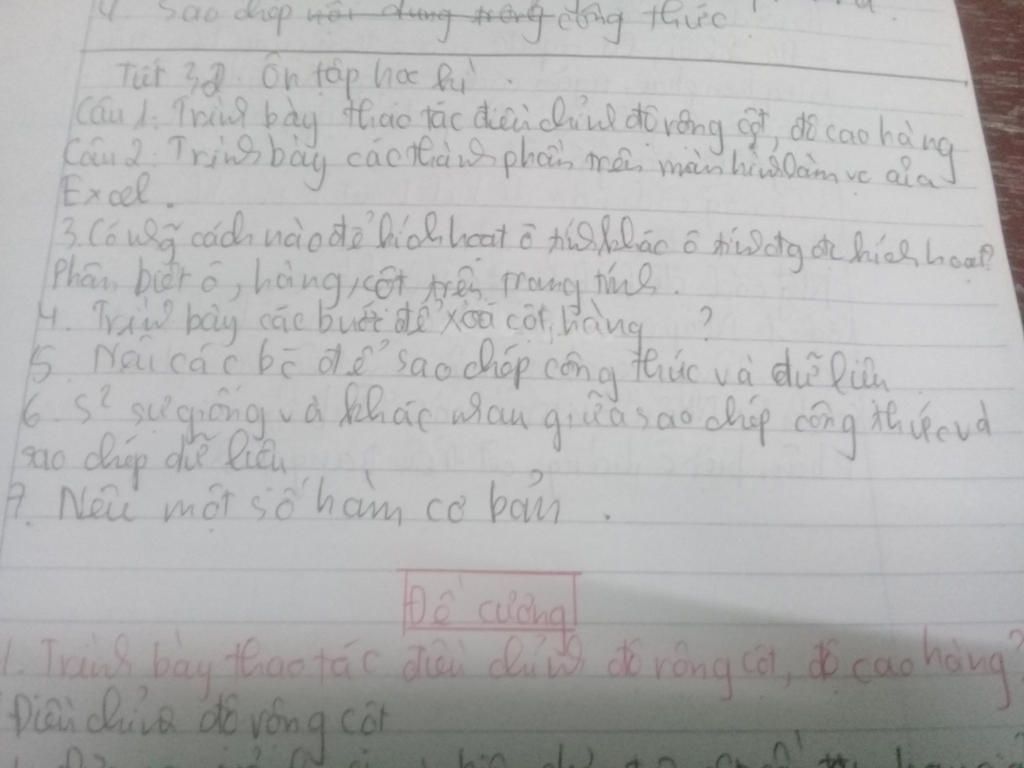 4. Sao chép nội dung trong công thức
Tiết 32 Ôn tập học kỳ.
Câu 1. Trình bày thao tác điều chỉnh độ rộng cột, độ cao hàng
Câu 2. Trình bày các thành phần màn hình làm vc của
Excel.
3. Có cách nào để kích hoạt ô tính khác ô tính đg đc kích hoạt?
Phân biệt ô, hàng, cột trên trang tính.
4. Trình bày các bước để xoá cột, hàng ?
5. Nêu các bc để sao chép công thức và dữ liệu
6. S² sự giống và khác nhau giữa sao chép công thức và
sao chép dữ liệu
7. Nêu một số hàm cơ bản.
Đề cương
1. Trình bày thao tác điều chỉnh độ rộng cột, độ cao hàng?
Điều chỉnh độ rộng cột